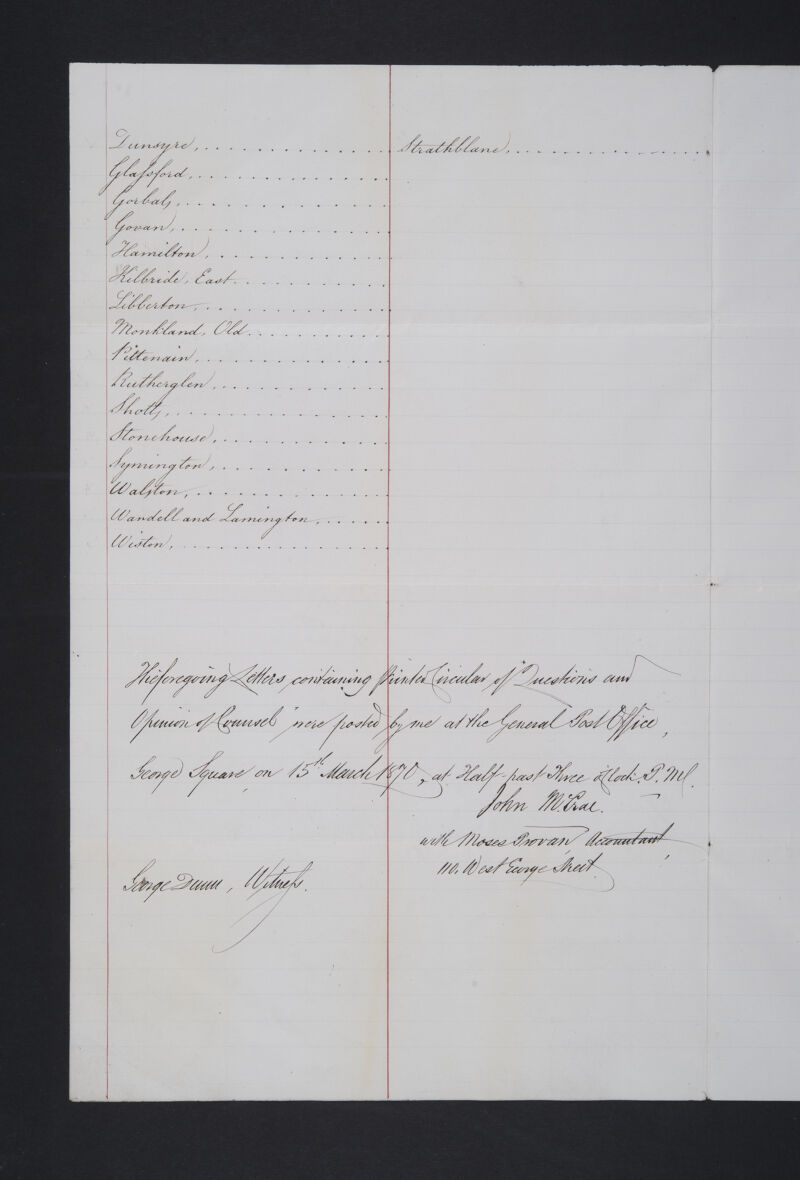 Dunsyre, . . . . . . . . . . . . . . . Strathblane, . . . . . . . . . . . . . .
Glassford, . . . . . . . . . . . . . . .
Gorbals, . . . . . . . . . . . . . . . .
Govan, . . . . . . . . . . . . . . . .
Hamilton, . . . . . . . . . . . . . .
Kilbride, East . . . . . . . . . . . .
Libberton, . . . . . . . . . . . . . .
Monkland, Old . . . . . . . . . . .
Pettenain, . . . . . . . . . . . . . .
Rutherglen, . . . . . . . . . . . . .
Shotts, . . . . . . . . . . . . . . . .
Stonehouse, . . . . . . . . . . . . .
Symington, . . . . . . . . . . . . .
Walston, . . . . . . . . . . . . . . .
Wandell and Lamington, . . . . . .
Wiston, . . . . . . . . . . . . . . . .
The foregoing Letters, containing Printed Circular of "Questions and
Opinion of Counsel" were posted by me at the General Post Office,
George Square, on 15th March 1870, at Half past Three o'Clock. P.M.
John McCrae.
with Moses Provan, Accountant,
110. West George Street.
George Dunn, Witness.